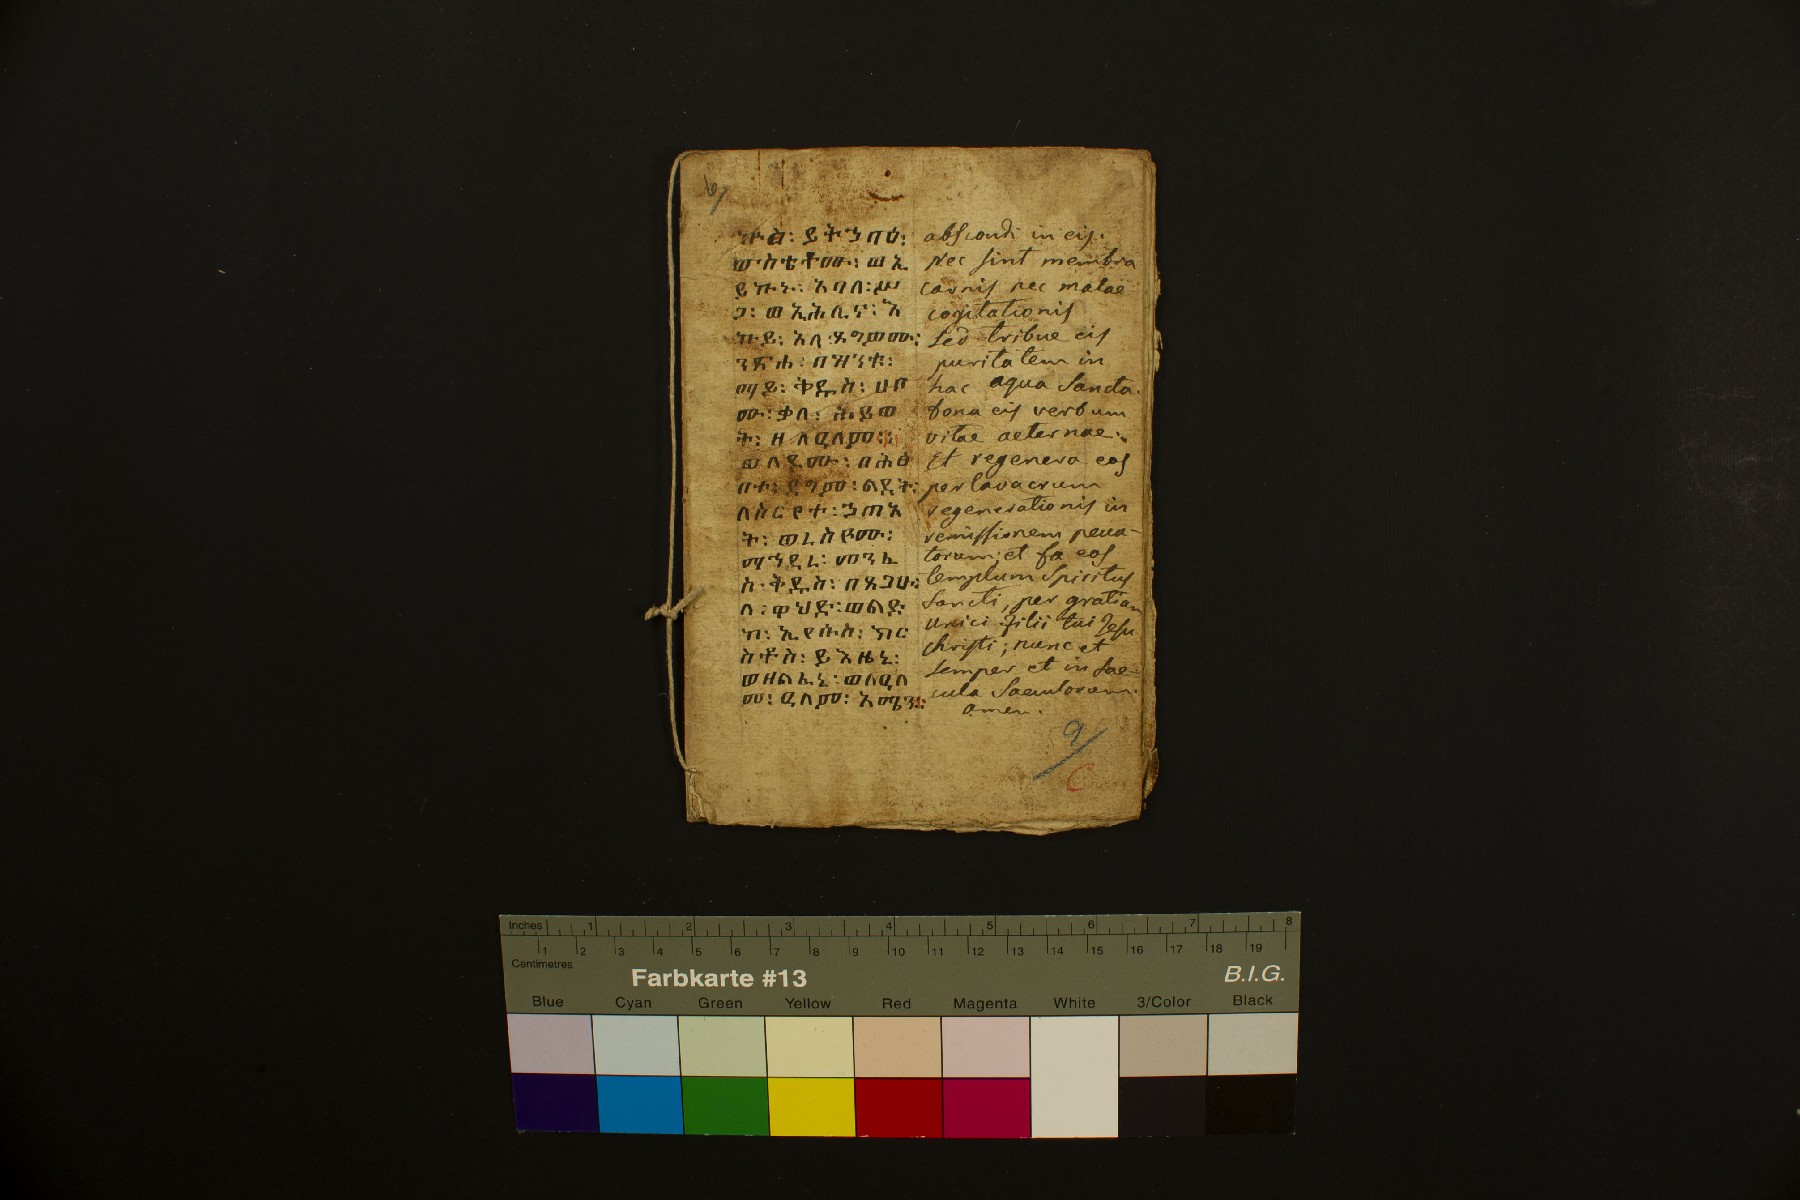 ኩስ፡ ይትኃባዕ፡
ውስቴቶሙ፡ ወኢ
ይኩኑ፡ አባለ፡ ሥ
ጋ፡ ወኢሕሊና፡ እ
ኩይ፡ አላ ጸግወሙ፡
ንጽሐ፡ በዝንቱ፡
ማይ፡ ቅዱስ፡ ሀቦ
ሙ፡ ቃለ፡ ሕይወ
ት፡ ዘ ለዓለም፡፡
ወለዶሙ፡ በሕፅ
በተ፡ ዳግም፡ ልደት፡
ለስርየተ፡ ኃጢአ
ት፡ ወረስዮሙ፡
ማኅደረ፡ መንፈ
ስ፡ ቅዱስ፡ በጸጋሁ፡
ለ፡ ዋህድ፡ ወልድ
ከ፡ ኢየሱስ፡ ክር
ስቶስ፡ ይእዜኒ፡
ወዘልፈኒ፡ ወለዓለ
መ፡ ዓለም፡ አሜን፡፡
abscondi in eis.
Nec sint membra
carnis nec malae
cogitationis
sed tribue eis
puritatem in
hac aqua Sancta.
Dona eis verbum
vitae aeternae.
Et regenera eos
per lavacrum
regenerationis in
remissionem pecca-
torum; et fa eos
templum Spiritus
Sancti, per gratiam
unici Filii tui Jesu
Christi; nunc et
semper et in sae-
cula saeculorum.
amen.
9/
C
Inches 1 2 3 4 5 6 7 8
1 2 3 4 5 6 7 8 9 10 11 12 13 14 15 16 17 18 19
Centimetres
Farbkarte #13
B.I.G.
Blue Cyan Green Yellow Red Magenta White 3/Color Black